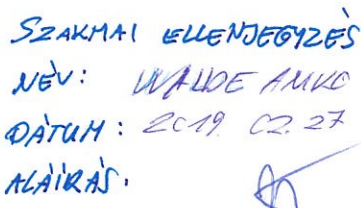 SZAKMAI ELLENJEGYZÉS
NÉV:
DÁTUM: 2019. 02. 27
ALÁÍRÁS: